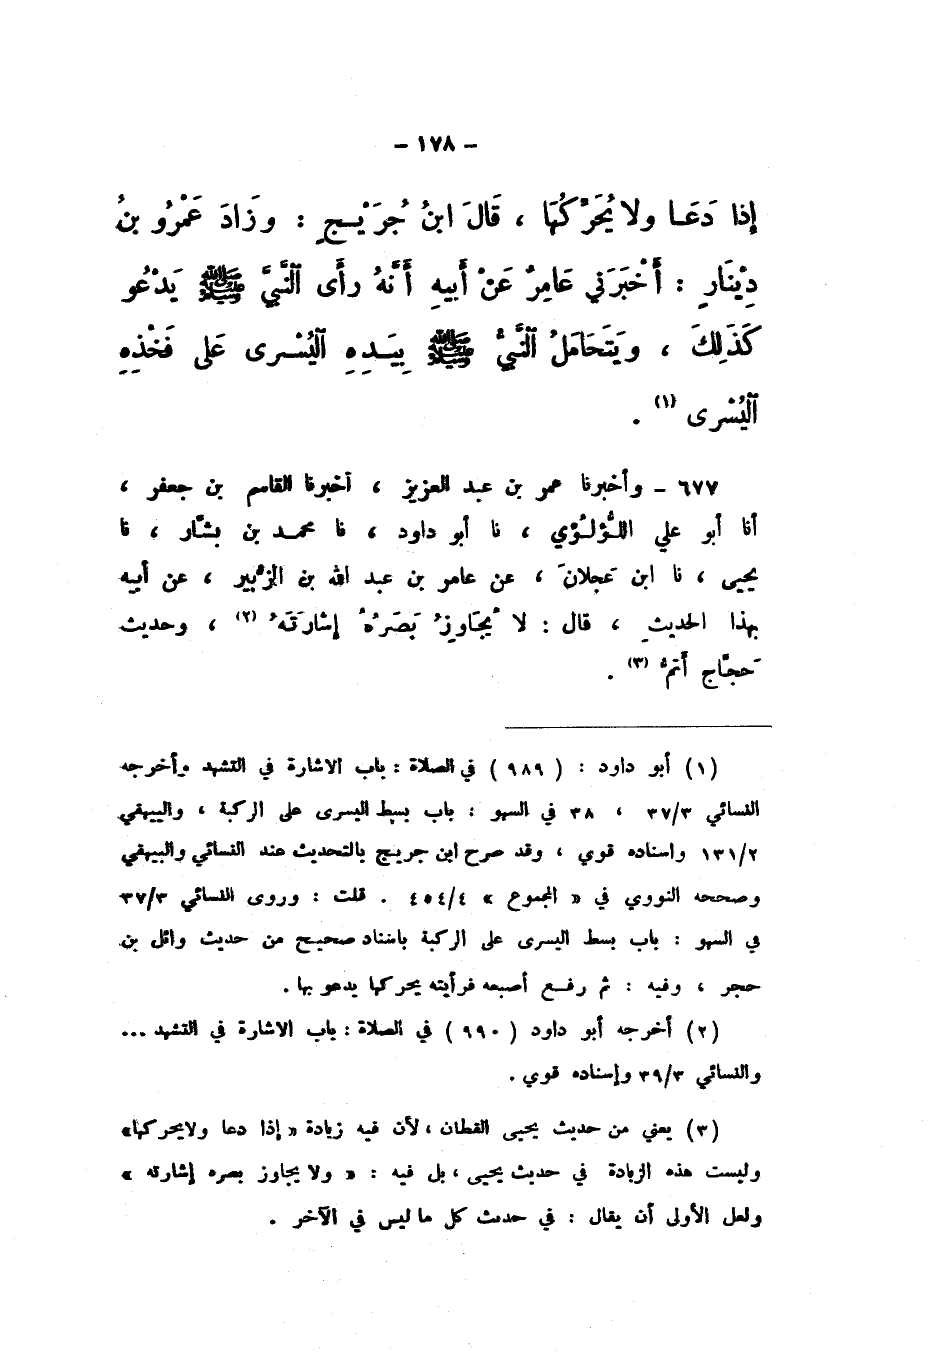 - ١٧٨ -
إِذا دَعَـا ولا يُحَرِّكُهَا ، قَالَ ابنُ جُرَيْـجٍ : وزَادَ عَمْرُو بنُ
دِيْنَارٍ : أَخْبَرَنِي عَامِرٌ عَنْ أَبيهِ أَنَّهُ رأَى النَّبيَّ ﷺ يَدْعُو
كَذَلِكَ ، ويَتَحَامَلُ النَّبيُّ ﷺ بِيَـدِهِ اليُسْـرى عَلى فَخْذِهِ
اليُسْرى (١) .
٦٧٧ - وأخبرنا عمر بن عبد العزيز ، أخبرنا القاسم بن جعفر ،
أنا أبو علي اللُّؤلُؤي ، نا أبو داود ، نا محمـد بن بشَّار ، نا
يحيى ، نا ابن عَجلانَ ، عن عامر بن عبد الله بن الزُّبير ، عن أبيه
بهذا الحديثِ ، قال : لا يُجَاوِزُ بَصَرُهُ إشارَتَهُ (٢) ، وحديث
حَجَّاج أتمُّ (٣) .
(١) أبو داود : ( ٩٨٩ ) في الصلاة : باب الاشارة في التشهد وأخرجه
النسائي ٣٧/٣ ، ٣٨ في السهو : باب بسط اليسرى على الركبة ، والبيهقي
١٣١/٢ واسناده قوي ، وقد صرح ابن جريج بالتحديث عند النسائي والبيهقي
وصححه النووي في « المجموع » ٤٥٤/٤ . قلت : وروى النسائي ٣٧/٣
في السهو : باب بسط اليسرى على الركبة باسناد صحيح من حديث وائل بن
حجر ، وفيه : ثم رفـع أصبعه فرأيته يحركها يدعو بها .
(٢) أخرجه أبو داود ( ٩٩٠ ) في الصلاة : باب الاشارة في التشهد ...
والنسائي ٣٩/٣ وإسناده قوي .
(٣) يعني من حديث يحيى القطان ، لأن فيه زيادة « إذا دعا ولا يحركها»
وليست هذه الزيادة في حديث يحيى ، بل فيه : « ولا يجاوز بصره إشارته »
ولعل الأولى أن يقال : في حديث كل ما ليس في الآخر .